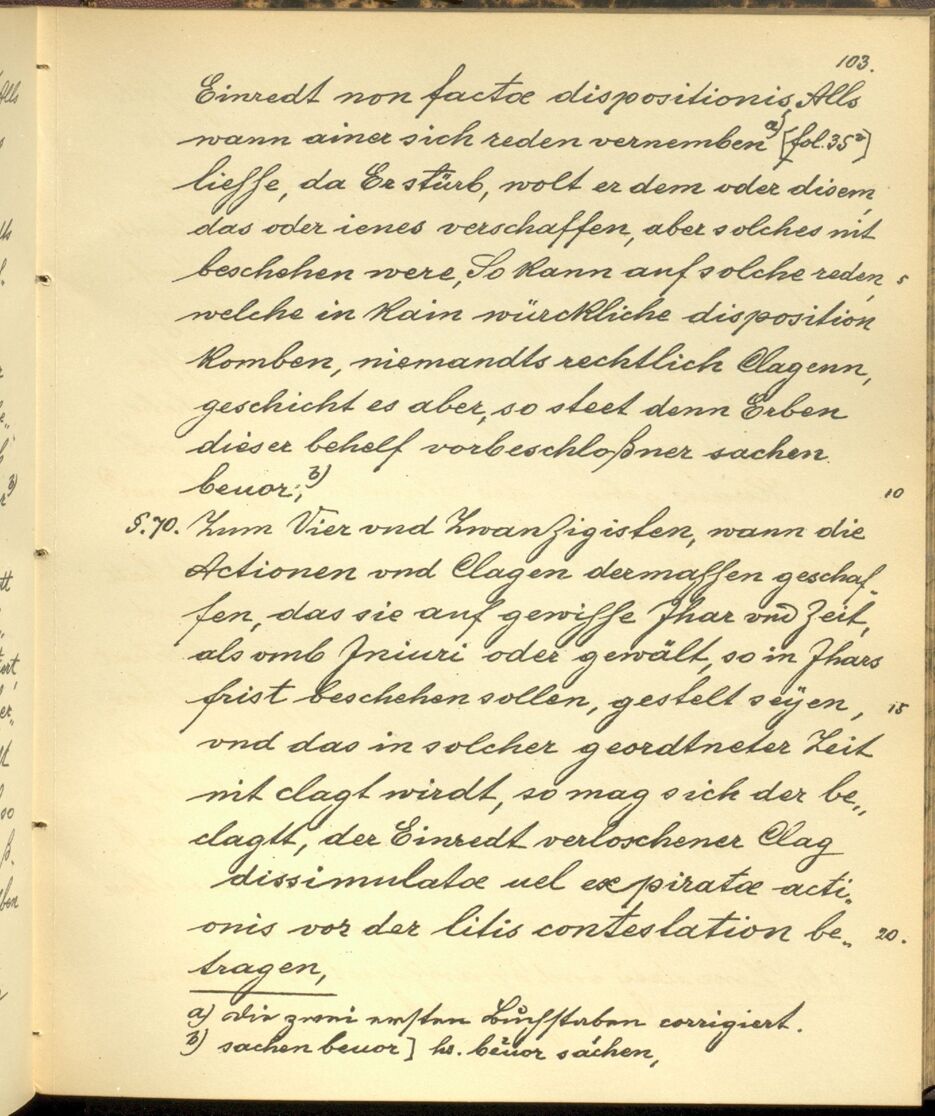 103.
Einredt non factæ dispositionis, Alls
wann ainer sich reden vernemben a) [fol. 35ᵃ]
liesse, da Er stürb, wolt er dem oder disem,
das oder ienes verschaffen, aber solches nit
beschehen were, So kann auf solche reden, 5
welche in kain würckliche disposition
komben, niemandts rechtlich Clagenn,
geschicht es aber, so steet denn Erben
dieser behelf vorbeschloßner sachen
beuor; b) 10
§. 70. Zum Vier vnd Zwanzigisten, wann die
Actionen vnd Clagen dermassen geschaf„
fen, das sie auf gewisse Jhar vnd Zeit,
als vmb Iniuri oder gewält, so in Jhars
frist beschehen sollen, gestelt seyen, 15
vnd das in solcher geordtneter Zeit
nit clagt wirdt, so mag sich der be„
clagtt, der Einredt verloschener Clag
dissimulatæ uel expiratæ acti„
onis vor der litis contestation be„ 20.
tragen,
a) die zwei ersten Buchstaben corrigiert.
b) sachen beuor] hs. beuor sachen,